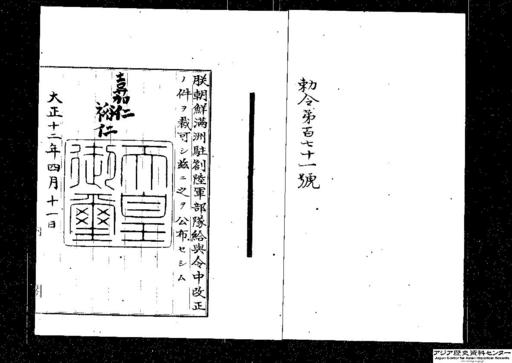 勅令第百七十一號
朕朝鮮滿洲駐劄陸軍部隊給與令中改正
ノ件ヲ裁可シ茲ニ之ヲ公布セシム
嘉仁
裕仁
天皇
御璽
大正十二年四月十一日
アジア歴史資料センター
Japan Center for Asian Historical Records